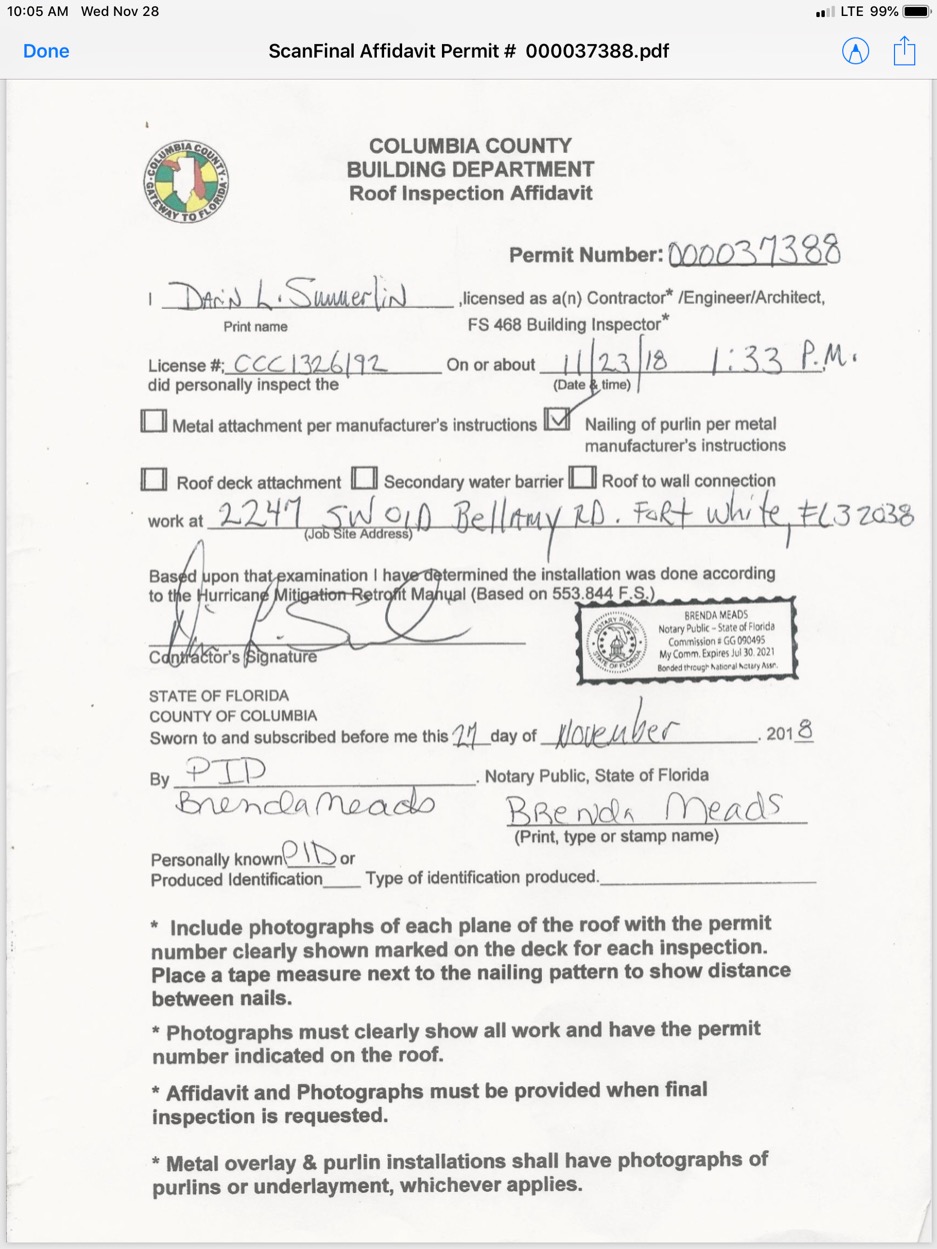 10:05 AM Wed Nov 28
LTE 99%
Done
ScanFinal Affidavit Permit # 000037388.pdf
COLUMBIA COUNTY
GATEWAY TO FLORIDA
COLUMBIA COUNTY
BUILDING DEPARTMENT
Roof Inspection Affidavit
Permit Number: 000037388
I Darin L. Summerlin ,licensed as a(n) Contractor* /Engineer/Architect,
Print name
FS 468 Building Inspector*
License #; CCC1326192 On or about 11/23/18 1:33 P.M.
did personally inspect the
(Date & time)
Metal attachment per manufacturer's instructions
Nailing of purlin per metal
manufacturer's instructions
Roof deck attachment Secondary water barrier Roof to wall connection
work at 2247 SW Old Bellamy RD. Fort White, FL 32038
(Job Site Address)
Based upon that examination I have determined the installation was done according
to the Hurricane Mitigation Retrofit Manual (Based on 553.844 F.S.)
Contractor's Signature
NOTARY PUBLIC
STATE OF FLORIDA
BRENDA MEADS
Notary Public - State of Florida
Commission # GG 090495
My Comm. Expires Jul 30, 2021
Bonded through National Notary Assn.
STATE OF FLORIDA
COUNTY OF COLUMBIA
Sworn to and subscribed before me this 27 day of November . 2018
By PID . Notary Public, State of Florida
Brenda Meads
Brenda Meads
(Print, type or stamp name)
Personally known PID or
Produced Identification____ Type of identification produced.
* Include photographs of each plane of the roof with the permit
number clearly shown marked on the deck for each inspection.
Place a tape measure next to the nailing pattern to show distance
between nails.
* Photographs must clearly show all work and have the permit
number indicated on the roof.
* Affidavit and Photographs must be provided when final
inspection is requested.
* Metal overlay & purlin installations shall have photographs of
purlins or underlayment, whichever applies.